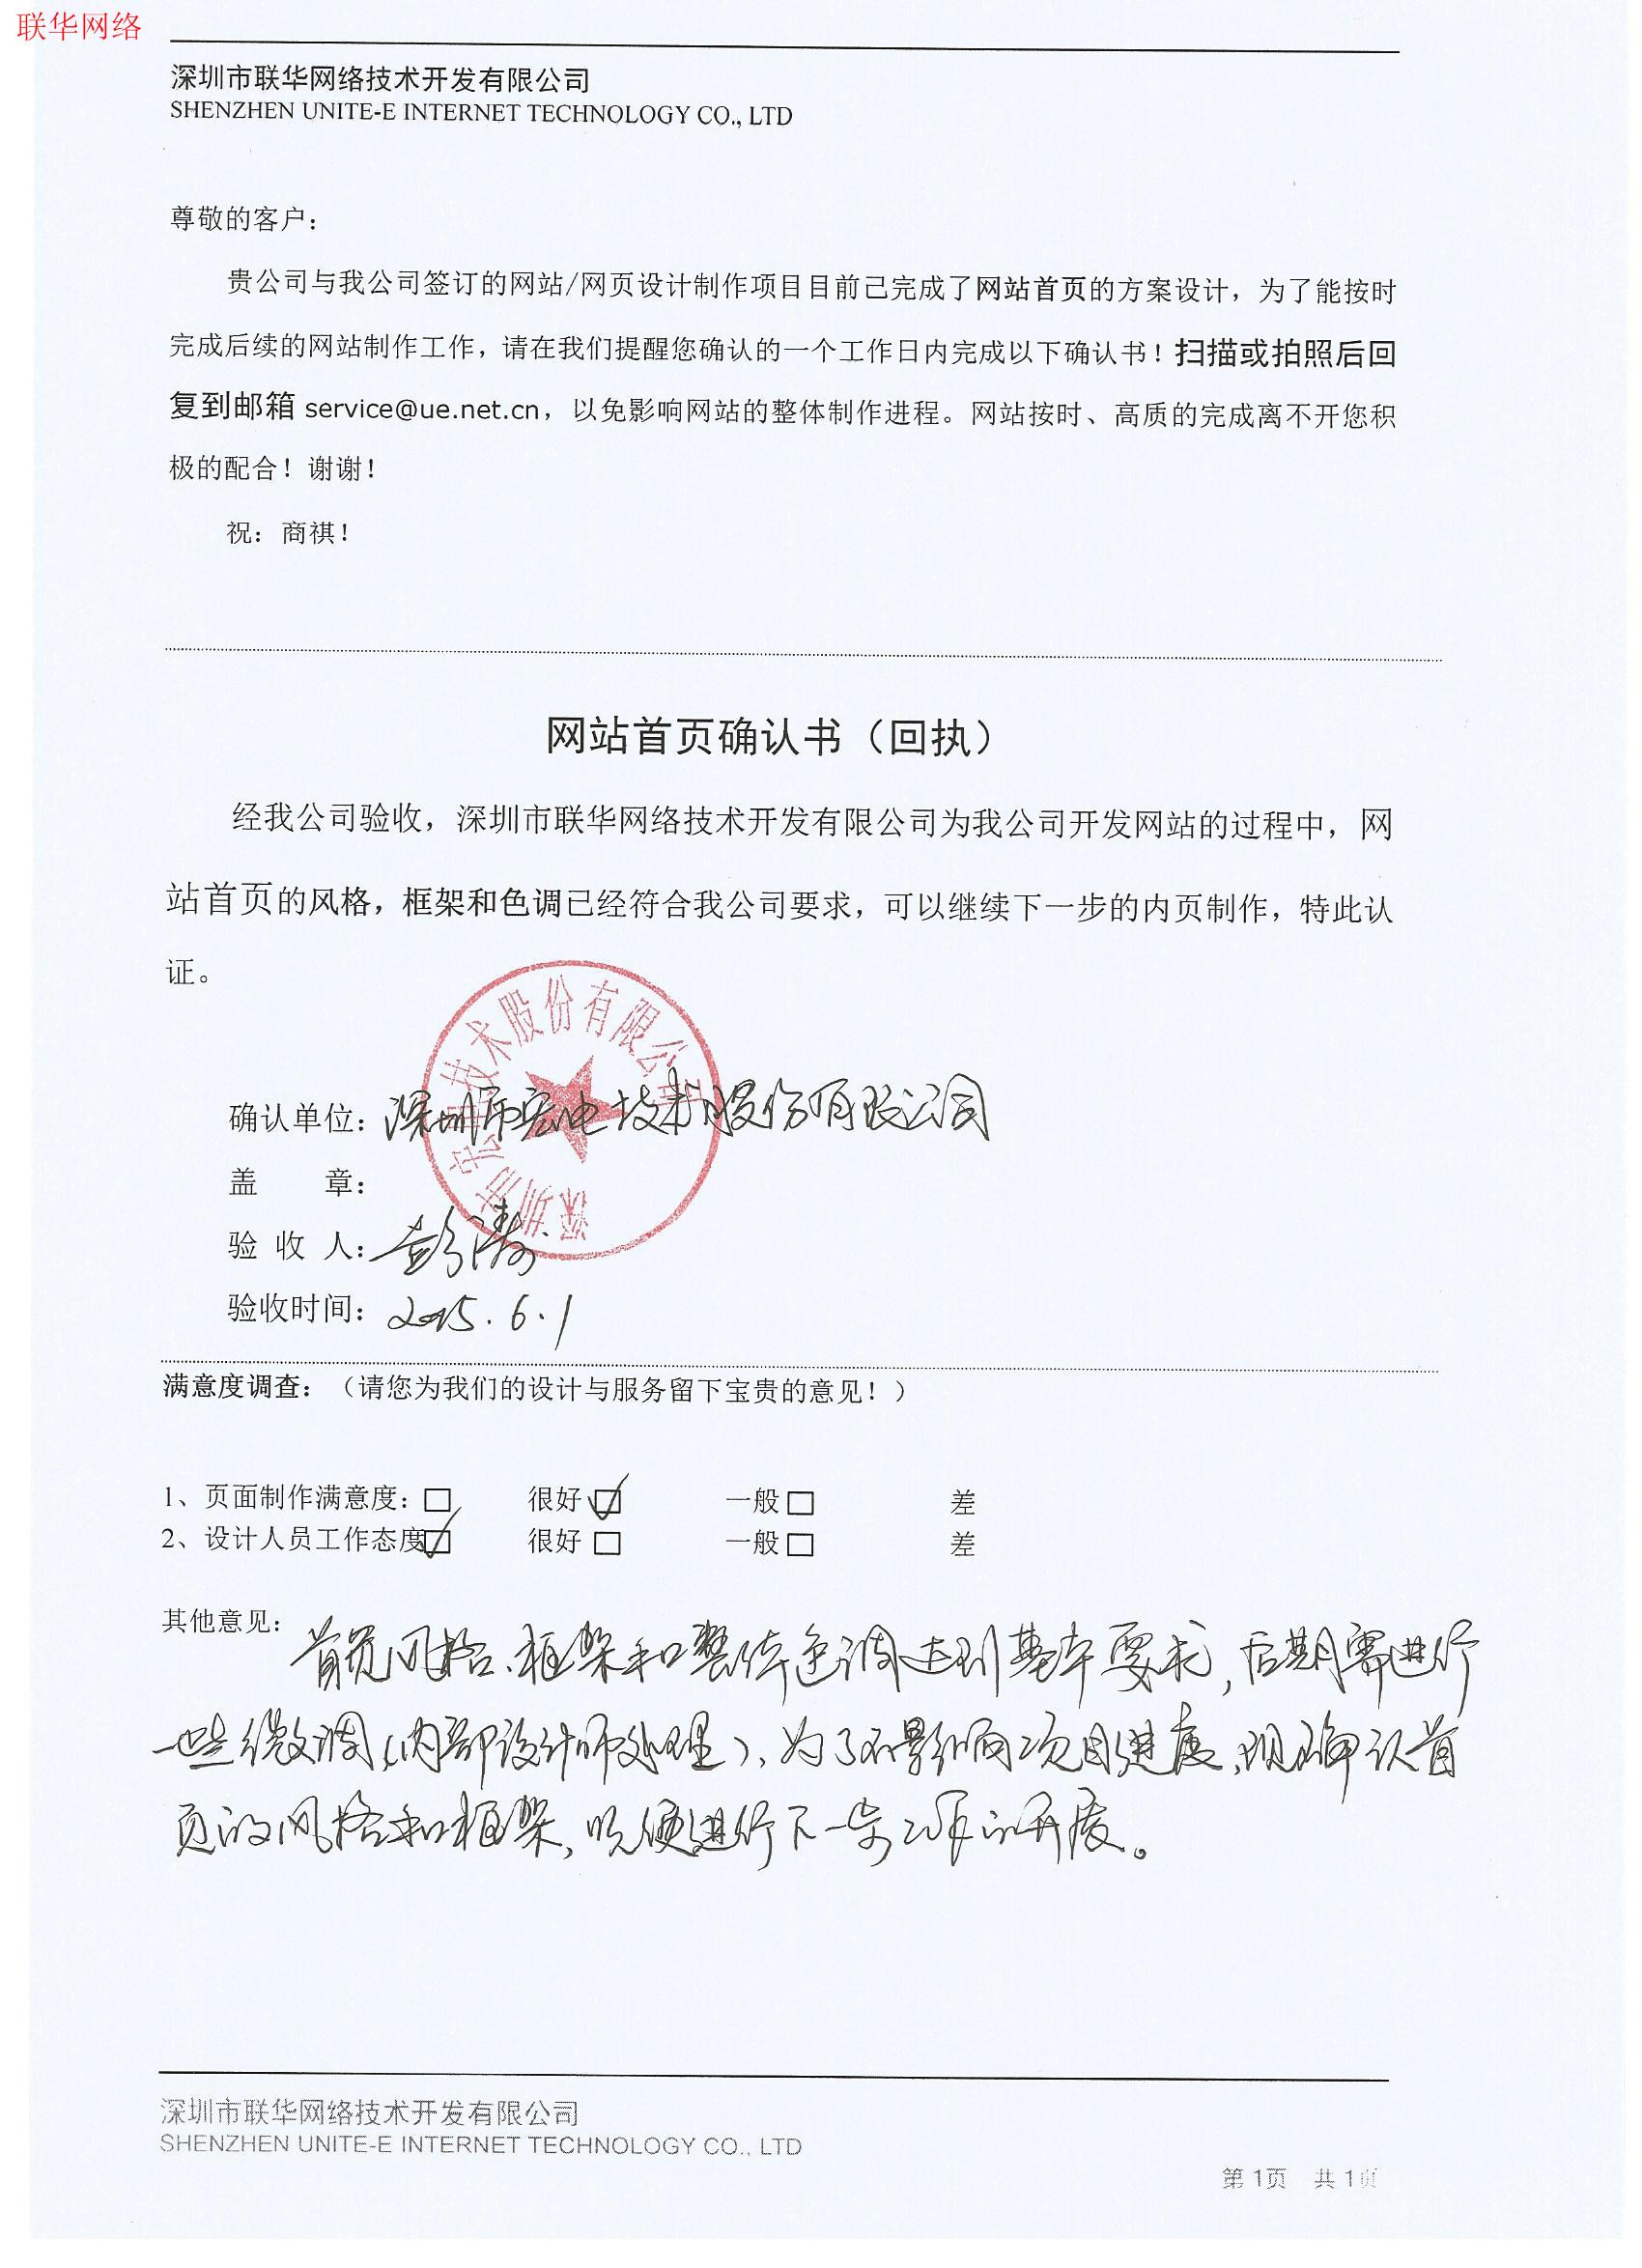 联华网络
深圳市联华网络技术开发有限公司
SHENZHEN UNITE-E INTERNET TECHNOLOGY CO., LTD
尊敬的客户：
贵公司与我公司签订的网站/网页设计制作项目目前己完成了网站首页的方案设计，为了能按时
完成后续的网站制作工作，请在我们提醒您确认的一个工作日内完成以下确认书！扫描或拍照后回
复到邮箱 service@ue.net.cn，以免影响网站的整体制作进程。网站按时、高质的完成离不开您积
极的配合！谢谢！
祝：商祺！
网站首页确认书（回执）
经我公司验收，深圳市联华网络技术开发有限公司为我公司开发网站的过程中，网
站首页的风格，框架和色调已经符合我公司要求，可以继续下一步的内页制作，特此认
证。
深圳市宏电技术股份有限公司
确认单位：深圳市宏电技术股份有限公司
盖 章：
验 收 人：彭涛
验收时间：2015.6.1
满意度调查：（请您为我们的设计与服务留下宝贵的意见！）
1、页面制作满意度：□ 很好 ☑ 一般 □ 差
2、设计人员工作态度 ☑ 很好 □ 一般 □ 差
其他意见：首页风格、框架和整体色调达到基本要求，后期需进行
一些微调（内部设计师处理）、为了不影响项目进度，现确认首
页的风格和框架，以便进行下一步工作的开展。
深圳市联华网络技术开发有限公司
SHENZHEN UNITE-E INTERNET TECHNOLOGY CO., LTD
第 1页 共 1页